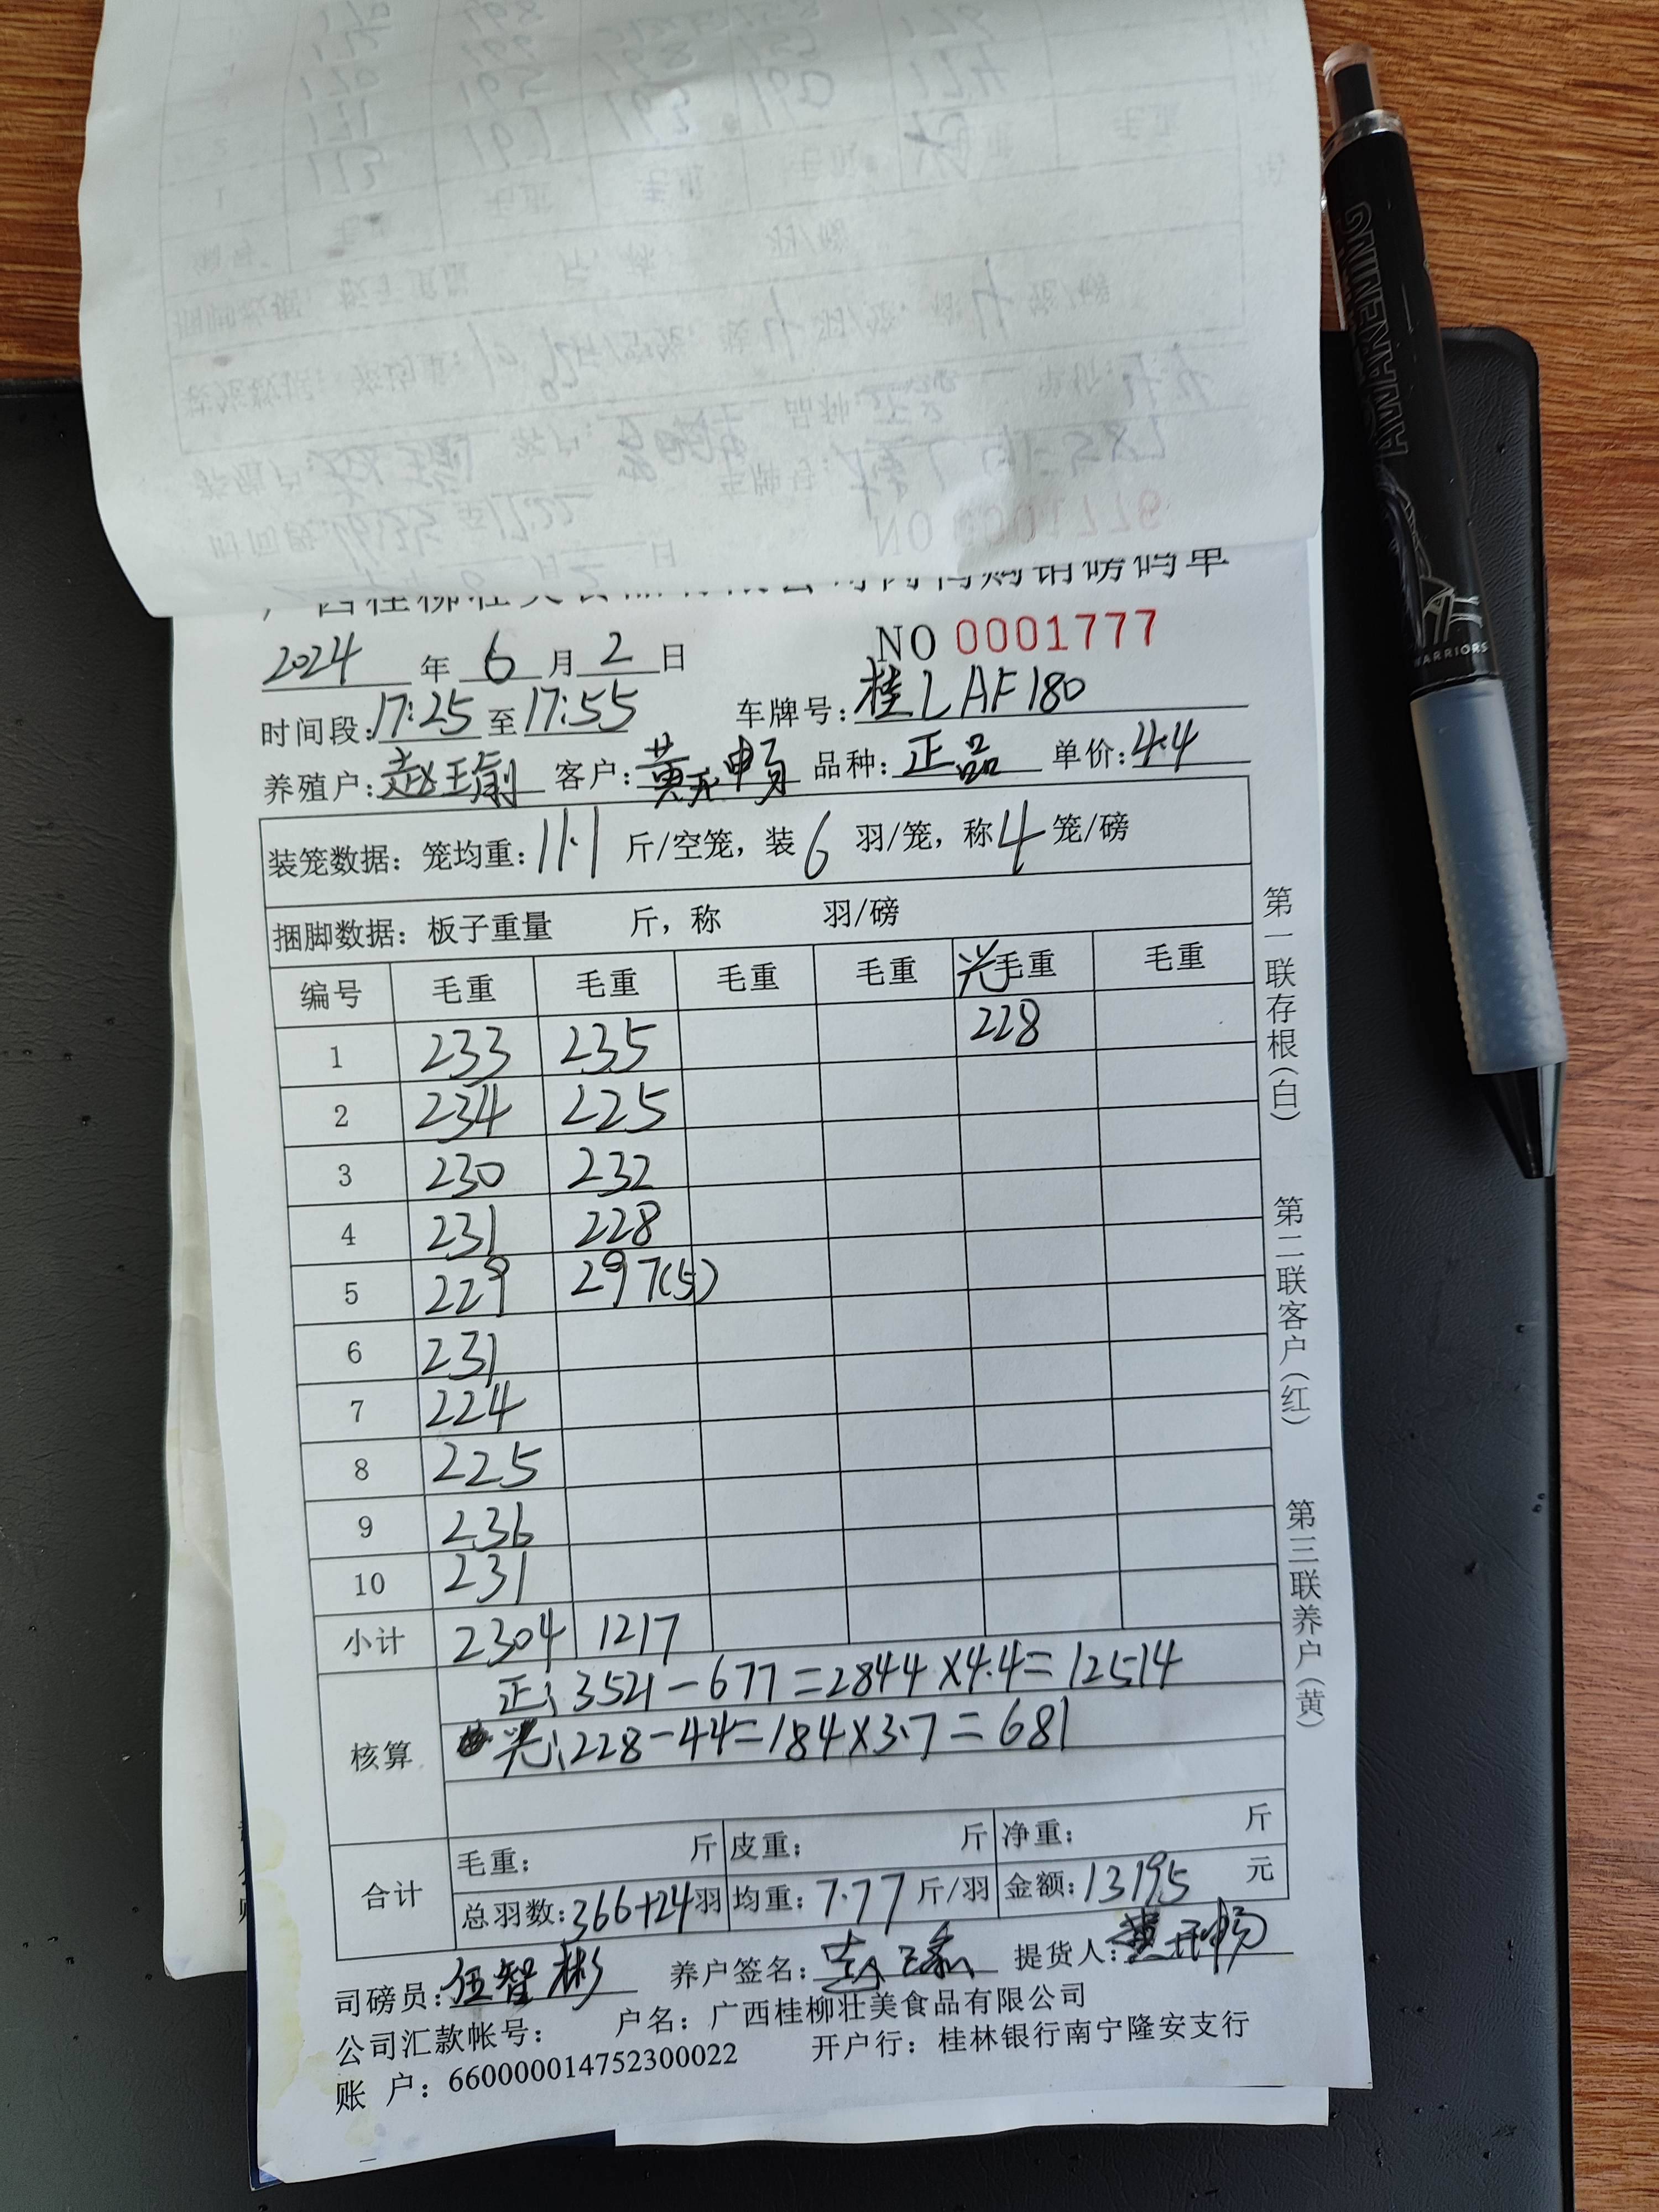 广西桂柳壮美食品有限公司肉鸭购销磅码单
2024 年 6 月 2 日 NO 0001777
时间段: 17:25 至 17:55 车牌号: 桂L AF180
养殖户: 赵玉俞 客户: 品种: 正品 单价: 4.4
装笼数据: 笼均重: 11.1 斤/空笼, 装 6 羽/笼, 称 4 笼/磅
捆脚数据: 板子重量 斤, 称 羽/磅
编号 毛重 毛重 毛重 毛重 光毛重 毛重
1 233 235 228
2 234 225
3 230 232
4 231 228
5 229 297(5)
6 231
7 224
8 225
9 236
10 231
小计 2304 1217
核算
正: 3521-677=2844×4.4=12514
光: 228-44=184×3.7=681
合计
毛重: 斤 皮重: 斤 净重: 斤
总羽数: 366+24 羽 均重: 7.77 斤/羽 金额: 13195 元
司磅员: 伍智彬 养户签名: 提货人:
公司汇款帐号: 户名: 广西桂柳壮美食品有限公司
账 户: 660000014752300022 开户行: 桂林银行南宁隆安支行
第一联存根(白)
第二联客户(红)
第三联养户(黄)
AWAKENING
WARRIORS